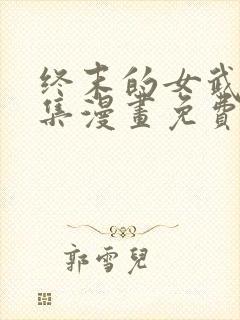 終末的女武
集漫畫免費
郭雪兒